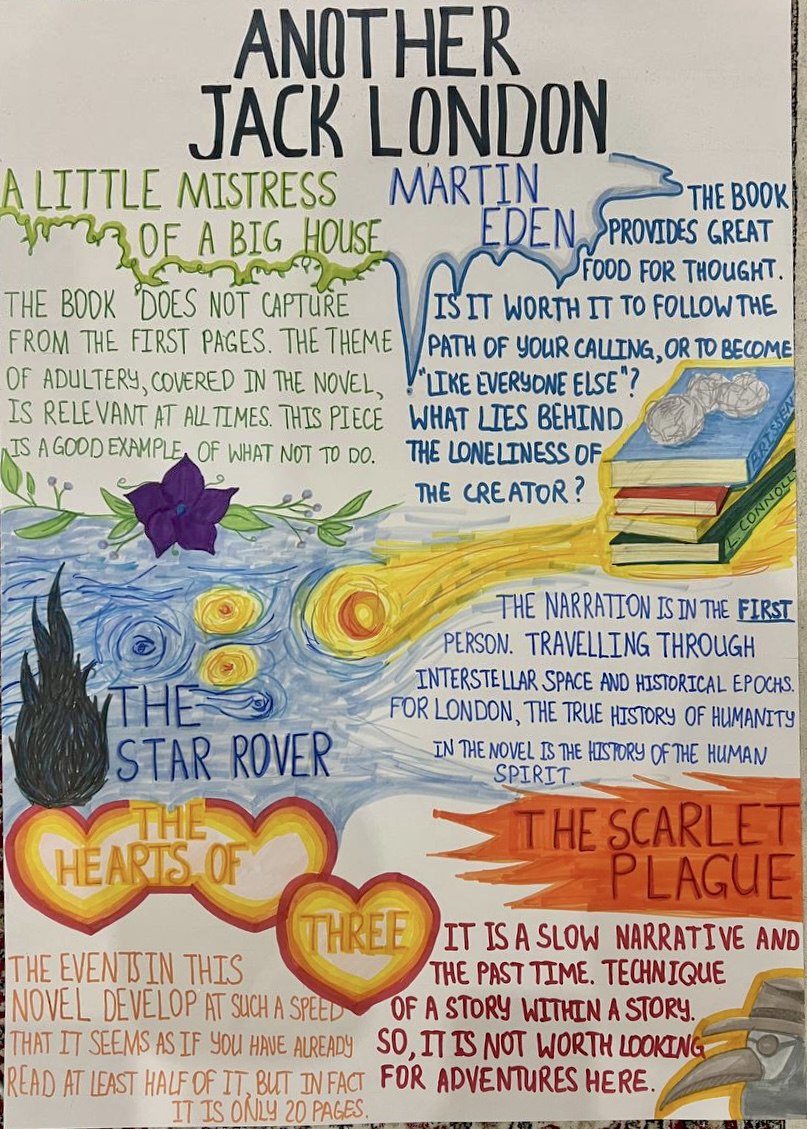 ANOTHER
JACK LONDON
A LITTLE MISTRESS
OF A BIG HOUSE
THE BOOK DOES NOT CAPTURE
FROM THE FIRST PAGES. THE THEME
OF ADULTERY, COVERED IN THE NOVEL,
IS RELEVANT AT ALL TIMES. THIS PIECE
IS A GOOD EXAMPLE OF WHAT NOT TO DO.
MARTIN
EDEN
THE BOOK
PROVIDES GREAT
FOOD FOR THOUGHT.
IS IT WORTH IT TO FOLLOW THE
PATH OF YOUR CALLING, OR TO BECOME
"LIKE EVERYONE ELSE"?
WHAT LIES BEHIND
THE LONELINESS OF
THE CREATOR?
BRISSEN
L. CONNOLL
THE
STAR ROVER
THE NARRATION IS IN THE FIRST
PERSON. TRAVELLING THROUGH
INTERSTELLAR SPACE AND HISTORICAL EPOCHS.
FOR LONDON, THE TRUE HISTORY OF HUMANITY
IN THE NOVEL IS THE HISTORY OF THE HUMAN
SPIRIT.
THE
HEARTS OF
THREE
THE EVENTS IN THIS
NOVEL DEVELOP AT SUCH A SPEED
THAT IT SEEMS AS IF YOU HAVE ALREADY
READ AT LEAST HALF OF IT, BUT IN FACT
IT IS ONLY 20 PAGES.
THE SCARLET
PLAGUE
IT IS A SLOW NARRATIVE AND
THE PAST TIME. TECHNIQUE
OF A STORY WITHIN A STORY.
SO, IT IS NOT WORTH LOOKING
FOR ADVENTURES HERE.